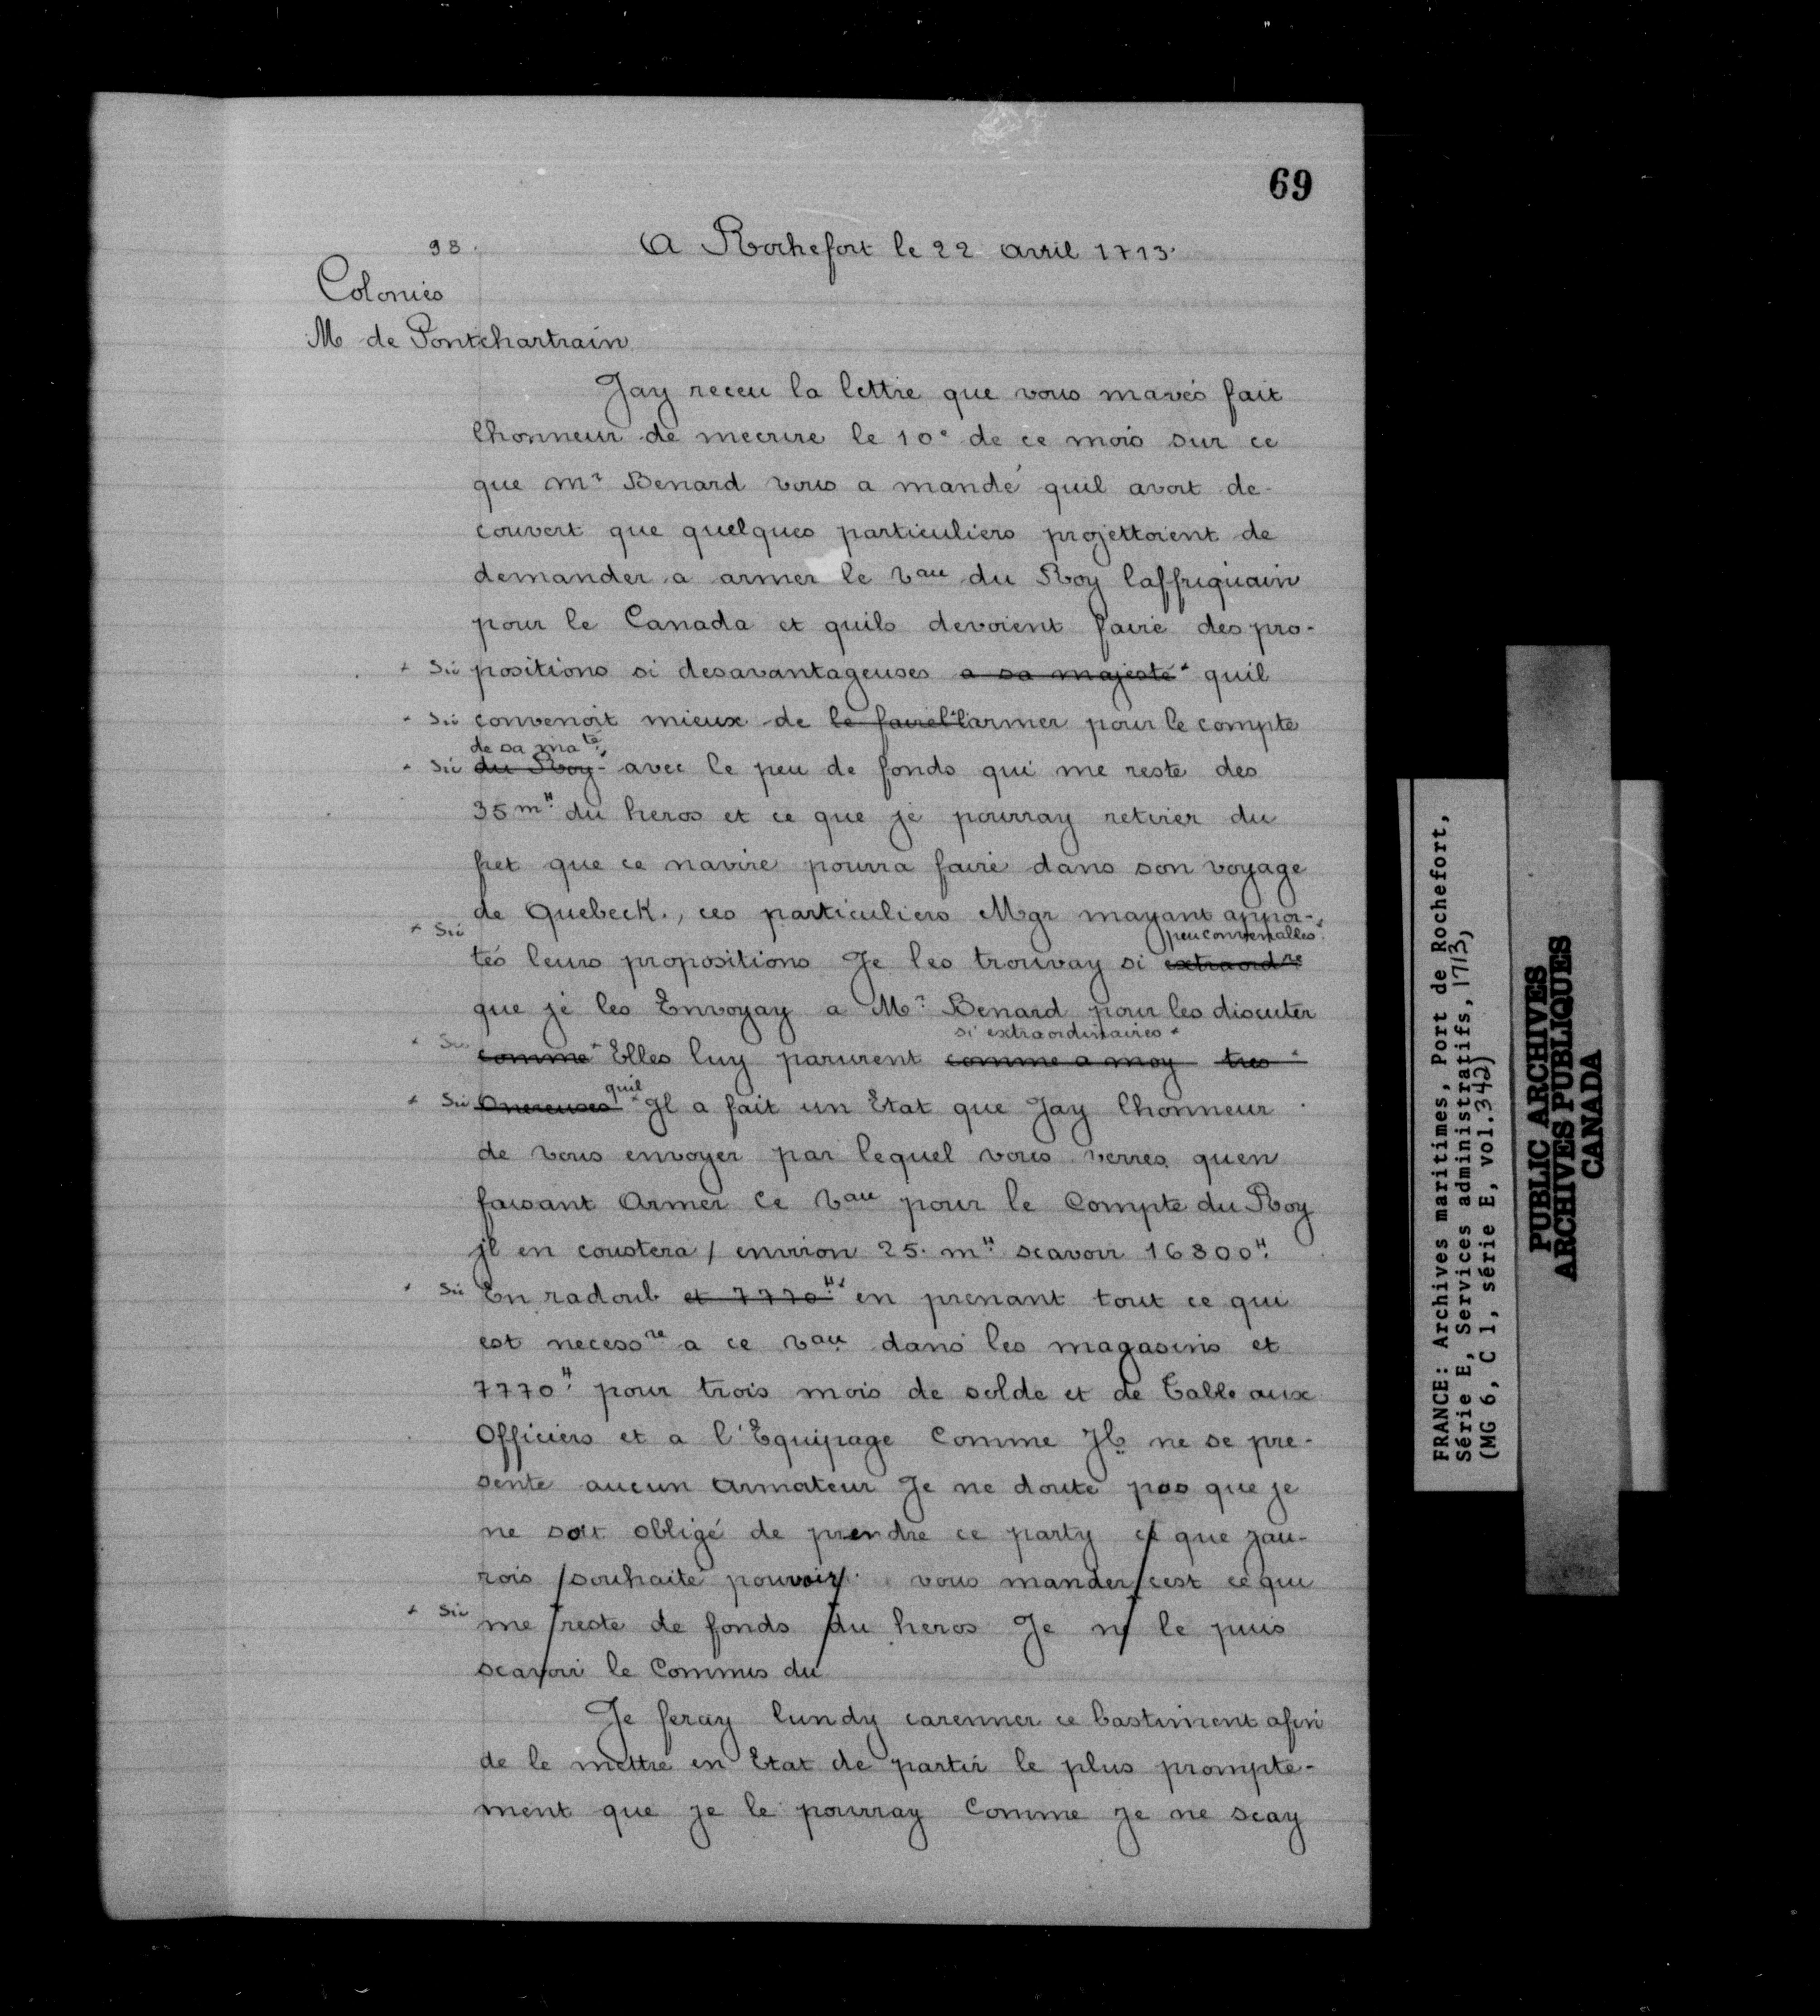 69
98.
A Rochefort le 22 avril 1713.
Colonies
M de Pontchartrain
Jay receu la lettre que vous mavés fait
lhonneur de mecrire le 10e de ce mois sur ce
que mr Benard vous a mandé quil avoit de-
couvert que quelques particuliers projettoient de
demander a armer le vau du Roy laffriquain
pour le Canada et quils devoient faire des pro-
+ Sic positions si desavantageuses a sa majesté + quil
+ Sic convenoit mieux de le faire + larmer pour le compte
de sa maté
+ Sic du Roy - avec le peu de fonds qui me reste des
35 m# du heros et ce que je pourray retirer du
fret que ce navire pourra faire dans son voyage
de Quebeck., ces particuliers Mgr mayant appor-
+ Sic
peu convenalles +
tés leurs propositions Je les trouvay si extraordre
que je les Envoyay a Mr Benard pour les discuter
si extraordinaires +
+ Sic comme + Elles luy parurent comme a moy tres +
quil
+ Sic Onereuses + Jl a fait un Etat que Jay lhonneur
de vous envoyer par lequel vous verres quen
faisant Armer Ce vau pour le Compte du Roy
jl en coustera / environ 25. m# scavoir 16800#
+ Sic En radoub et 7770# + en prenant tout ce qui
est necessre a ce vau dans les magasins et
7770# pour trois mois de solde et de Table aux
Officiers et a l'Equipage Comme Jl ne se pre-
sente aucun Armateur Je ne doute pas que je
ne soit obligé de prendre ce party ce que jau-
rois souhaité pouvoir vous mander cest ce qui
+ Sic me reste de fonds du heros Je ne le puis
scavoir le Commis du
Je feray lundy carenner ce bastiment afin
de le mettre en Etat de partir le plus prompte-
ment que je le pourray Comme Je ne scay
FRANCE: Archives maritimes, Port de Rochefort,
Série E, Services administratifs, 1713,
(MG 6, C 1, série E, vol. 342)
PUBLIC ARCHIVES
ARCHIVES PUBLIQUES
CANADA